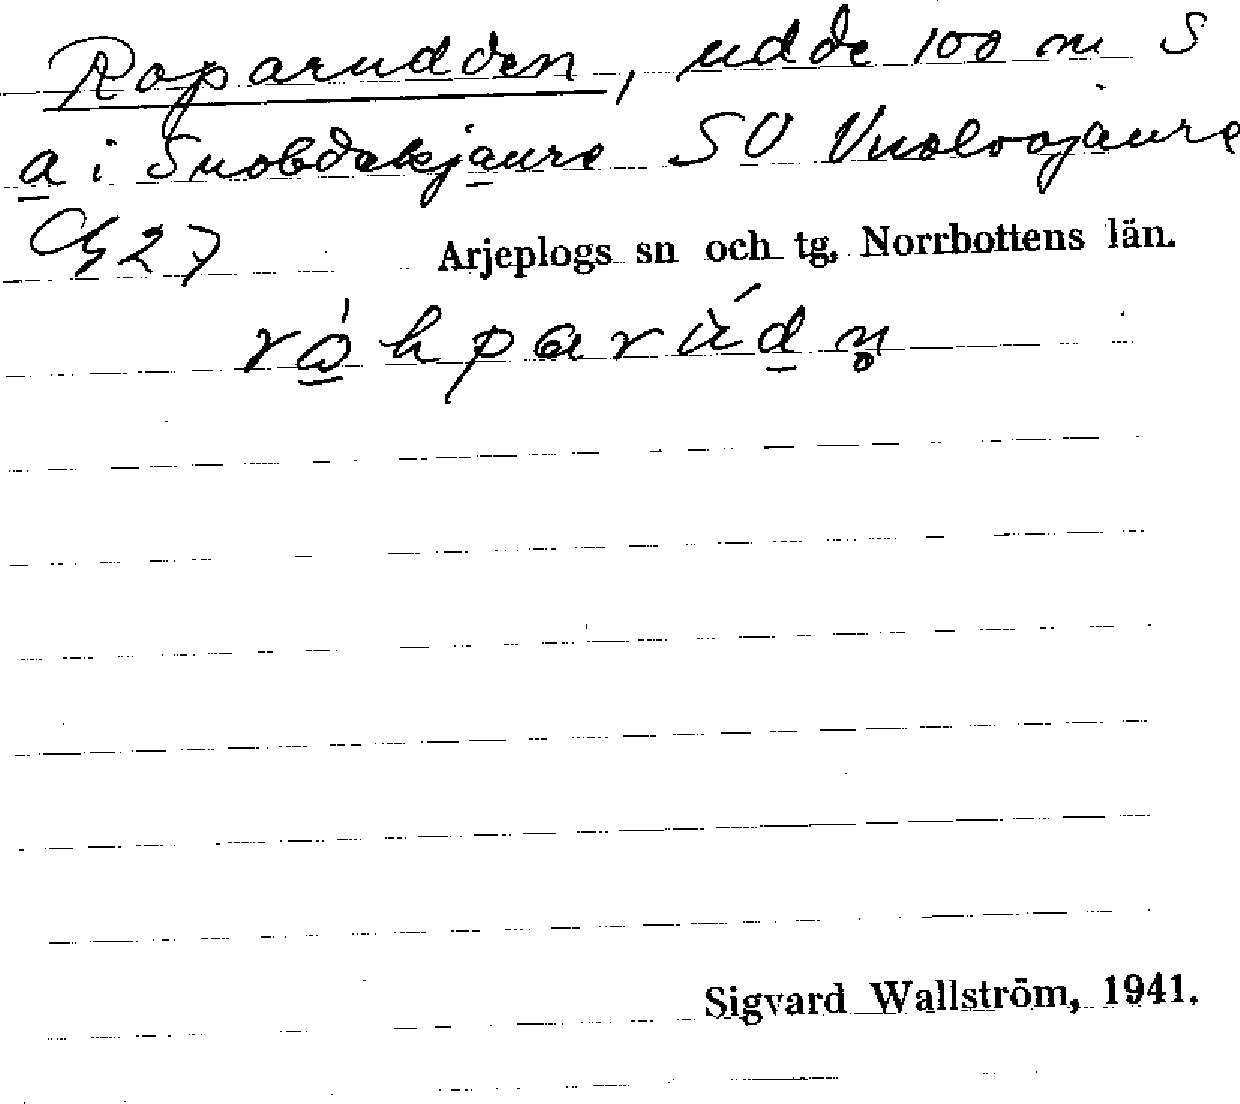 Roparudden, udde 100 m S
a i Snobdakjaure SO Vuolvojaure
Cg 27 Arjeplogs sn och tg. Norrbottens län.
Sigvard Wallström, 1941.